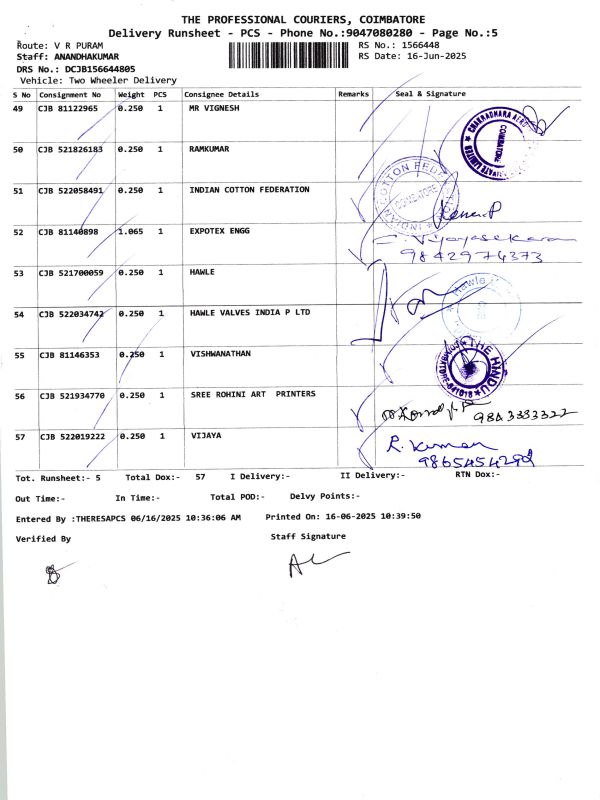 THE PROFESSIONAL COURIERS, COIMBATORE
Delivery Runsheet - PCS - Phone No.:9047080280 - Page No.:5
Route: V R PURAM
RS No.: 1566448
Staff: ANANDHAKUMAR
RS Date: 16-Jun-2025
DRS No.: DCJB156644805
Vehicle: Two Wheeler Delivery
S No Consignment No Weight PCS Consignee Details Remarks Seal & Signature
49 CJB 81122965 0.250 1 MR VIGNESH
50 CJB 521826183 0.250 1 RAMKUMAR
COIMBATORE
51 CJB 522058491 0.250 1 INDIAN COTTON FEDERATION
INDIAN COTTON FEDE
COIMBATORE
52 CJB 81140898 1.065 1 EXPOTEX ENGG
C. Vijayasekaran
9842974373
53 CJB 521700059 0.250 1 HAWLE
54 CJB 522034742 0.250 1 HAWLE VALVES INDIA P LTD
Hawle
55 CJB 81146353 0.250 1 VISHWANATHAN
THE HINDU
56 CJB 521934770 0.250 1 SREE ROHINI ART PRINTERS
9843333322
57 CJB 522019222 0.250 1 VIJAYA
R. Kumar
Tot. Runsheet:- 5 Total Dox:- 57 I Delivery:- II Delivery:- RTN Dox:-
Out Time:- In Time:- Total POD:- Delvy Points:-
Entered By :THERESAPCS 06/16/2025 10:36:06 AM Printed On: 16-06-2025 10:39:50
Verified By Staff Signature